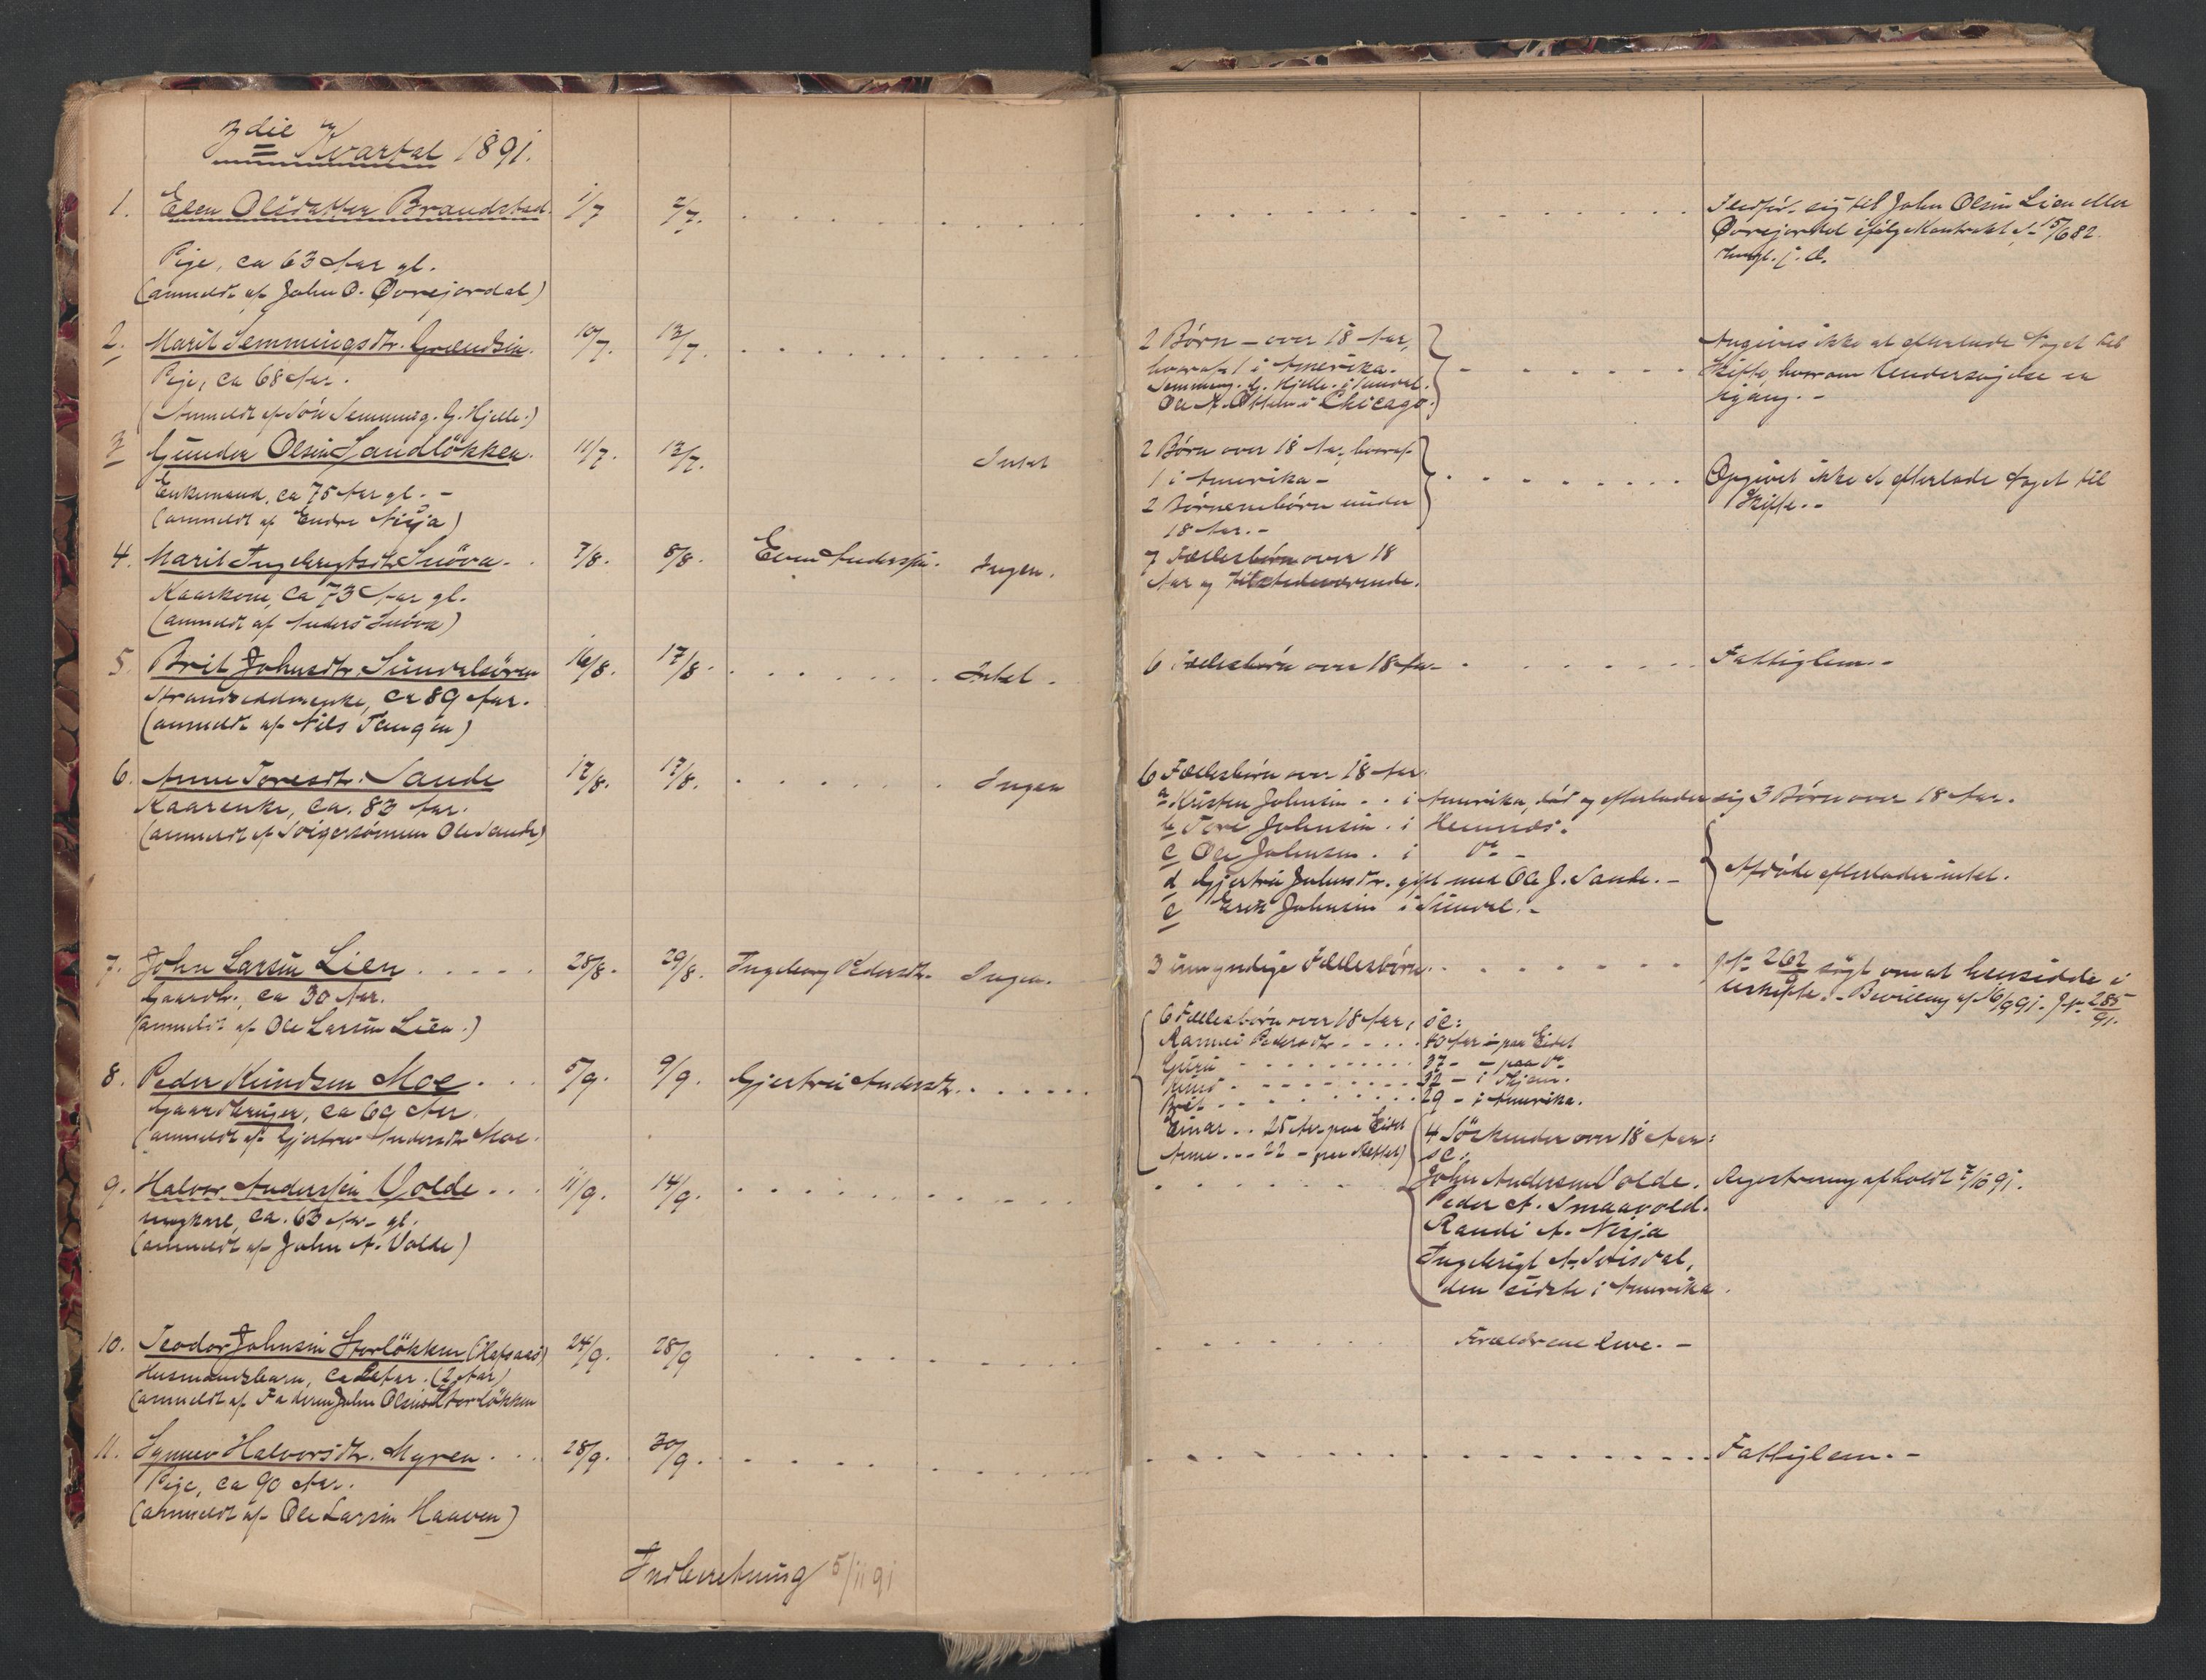 3die Kvartal 1891.
1. Elen Olsdatter Brandstad. 1/7 2/7.
Pige, ca 63 Aar gl.
(anmeldt af John O. Øvrejordal)
sig til John Olsen Lien eller
Øvrejordal ifølge Kontrakt 15/6 82
2. Marit Semmingsdtr. Grændsen. 10/7. 13/7.
Pige, ca 68 Aar.
(Anmeldt af Søn Semming. G. Hjelle.)
2 Børn - over 18 Aar,
hvoraf 1 i Amerika.
Semming. G. Hjelle. i Sundal.
Ole A. i Chicago.
Angives ikke at efterlade Noget til
Skifte, hvorom Undersøgelse er
igang. -
3 Gunder Olsen Sandløkken. 11/7. 13/7. Intet
Enkemand, ca 75 Aar gl. -
(anmeldt af Endre Nisja)
2 Børn over 18 Aar, hvoraf
1 i Amerika -
2 Børnebørn under
18 Aar. -
Opgives ikke at efterlade Noget til
Skifte. -
4. Marit Ingebrigtsdtr Snöva. 7/8. 8/8. Even Andersen. Ingen.
Kaarkone, ca 73 Aar gl.
(anmeldt af Anders Snöva)
7 Fællesbørn over 18
Aar og tilstedeværende.
5. Brit Johnsdtr. Sundalsören 16/8. 17/8. Intet.
Strandsidderenke, ca 89 Aar.
(anmeldt af Nils Tangen)
6 Fællesbørn over 18 Aar Fattiglem. -
6. Anne Toresdtr. Sande 17/8. 17/8. Ingen
Kaarenke, ca. 83 Aar.
(anmeldt af Svigersönnen Ole Sande)
6 Fællesbørn over 18 Aar.
a Kristen Johnsen . . i Amerika, död og efterlader sig 3 Børn over 18 Aar.
b Tore Johnsen . i Hemnæs.
c Ole Johnsen . i do -
d Gjertru Johnsdtr. gift med Ole J. Sande. -
e Erik Johnsen i Sundal. -
Afdöde efterlader intet.
7. John Larsen Lien 28/8. 29/8. Ingeborg Pedersdtr. Ingen.
Gaardbr., ca 30 Aar.
(anmeldt af Ole Larsen Lien.)
3 umyndige Fællesbørn.
262 søgt om at hensidde i
uskifte. - Bevilling af 16/9 91. J.No 285/91.
8. Peder Knudsen Moe 5/9. 9/9. Gjertru Andersdtr.
Gaardbruger, ca 69 Aar
(anmeldt af Gjertru Andersdtr Moe.
6 Fællesbørn over 18 Aar, sc:
Pedersdtr 40 Aar - paa Eidet
Guru 37 - - paa do
Knud 32 - i
Brit 29 - i Amerika.
Einar . . 25 Aar paa Eidet
Anne . . . 22 -
9. Halvor Andersen Volde 11/9. 14/9.
ungkarl, ca. 63 Aar gl.
(anmeldt af John A. Volde)
4 Söskende over 18 Aar:
sc:
John Andersen Volde.
Peder A. Smaavold.
Randi A. Nisja
Ingebrigt A.
den sidste i Amerika.
Registrering afholdt 7/10 91.
10. Teodor Johnsen Storløkken 24/9. 28/9
Husmandsbarn, (2 Aar)
(anmeldt af Faderen John Olsen Storløkken
Forældrene leve. -
11. Synnev Halvorsdtr. Myren 28/9. 30/9.
Pige, ca 90 Aar.
(anmeldt af Ole Larsen Haaven)
Fattiglem. -
Indberetning 5/11 91